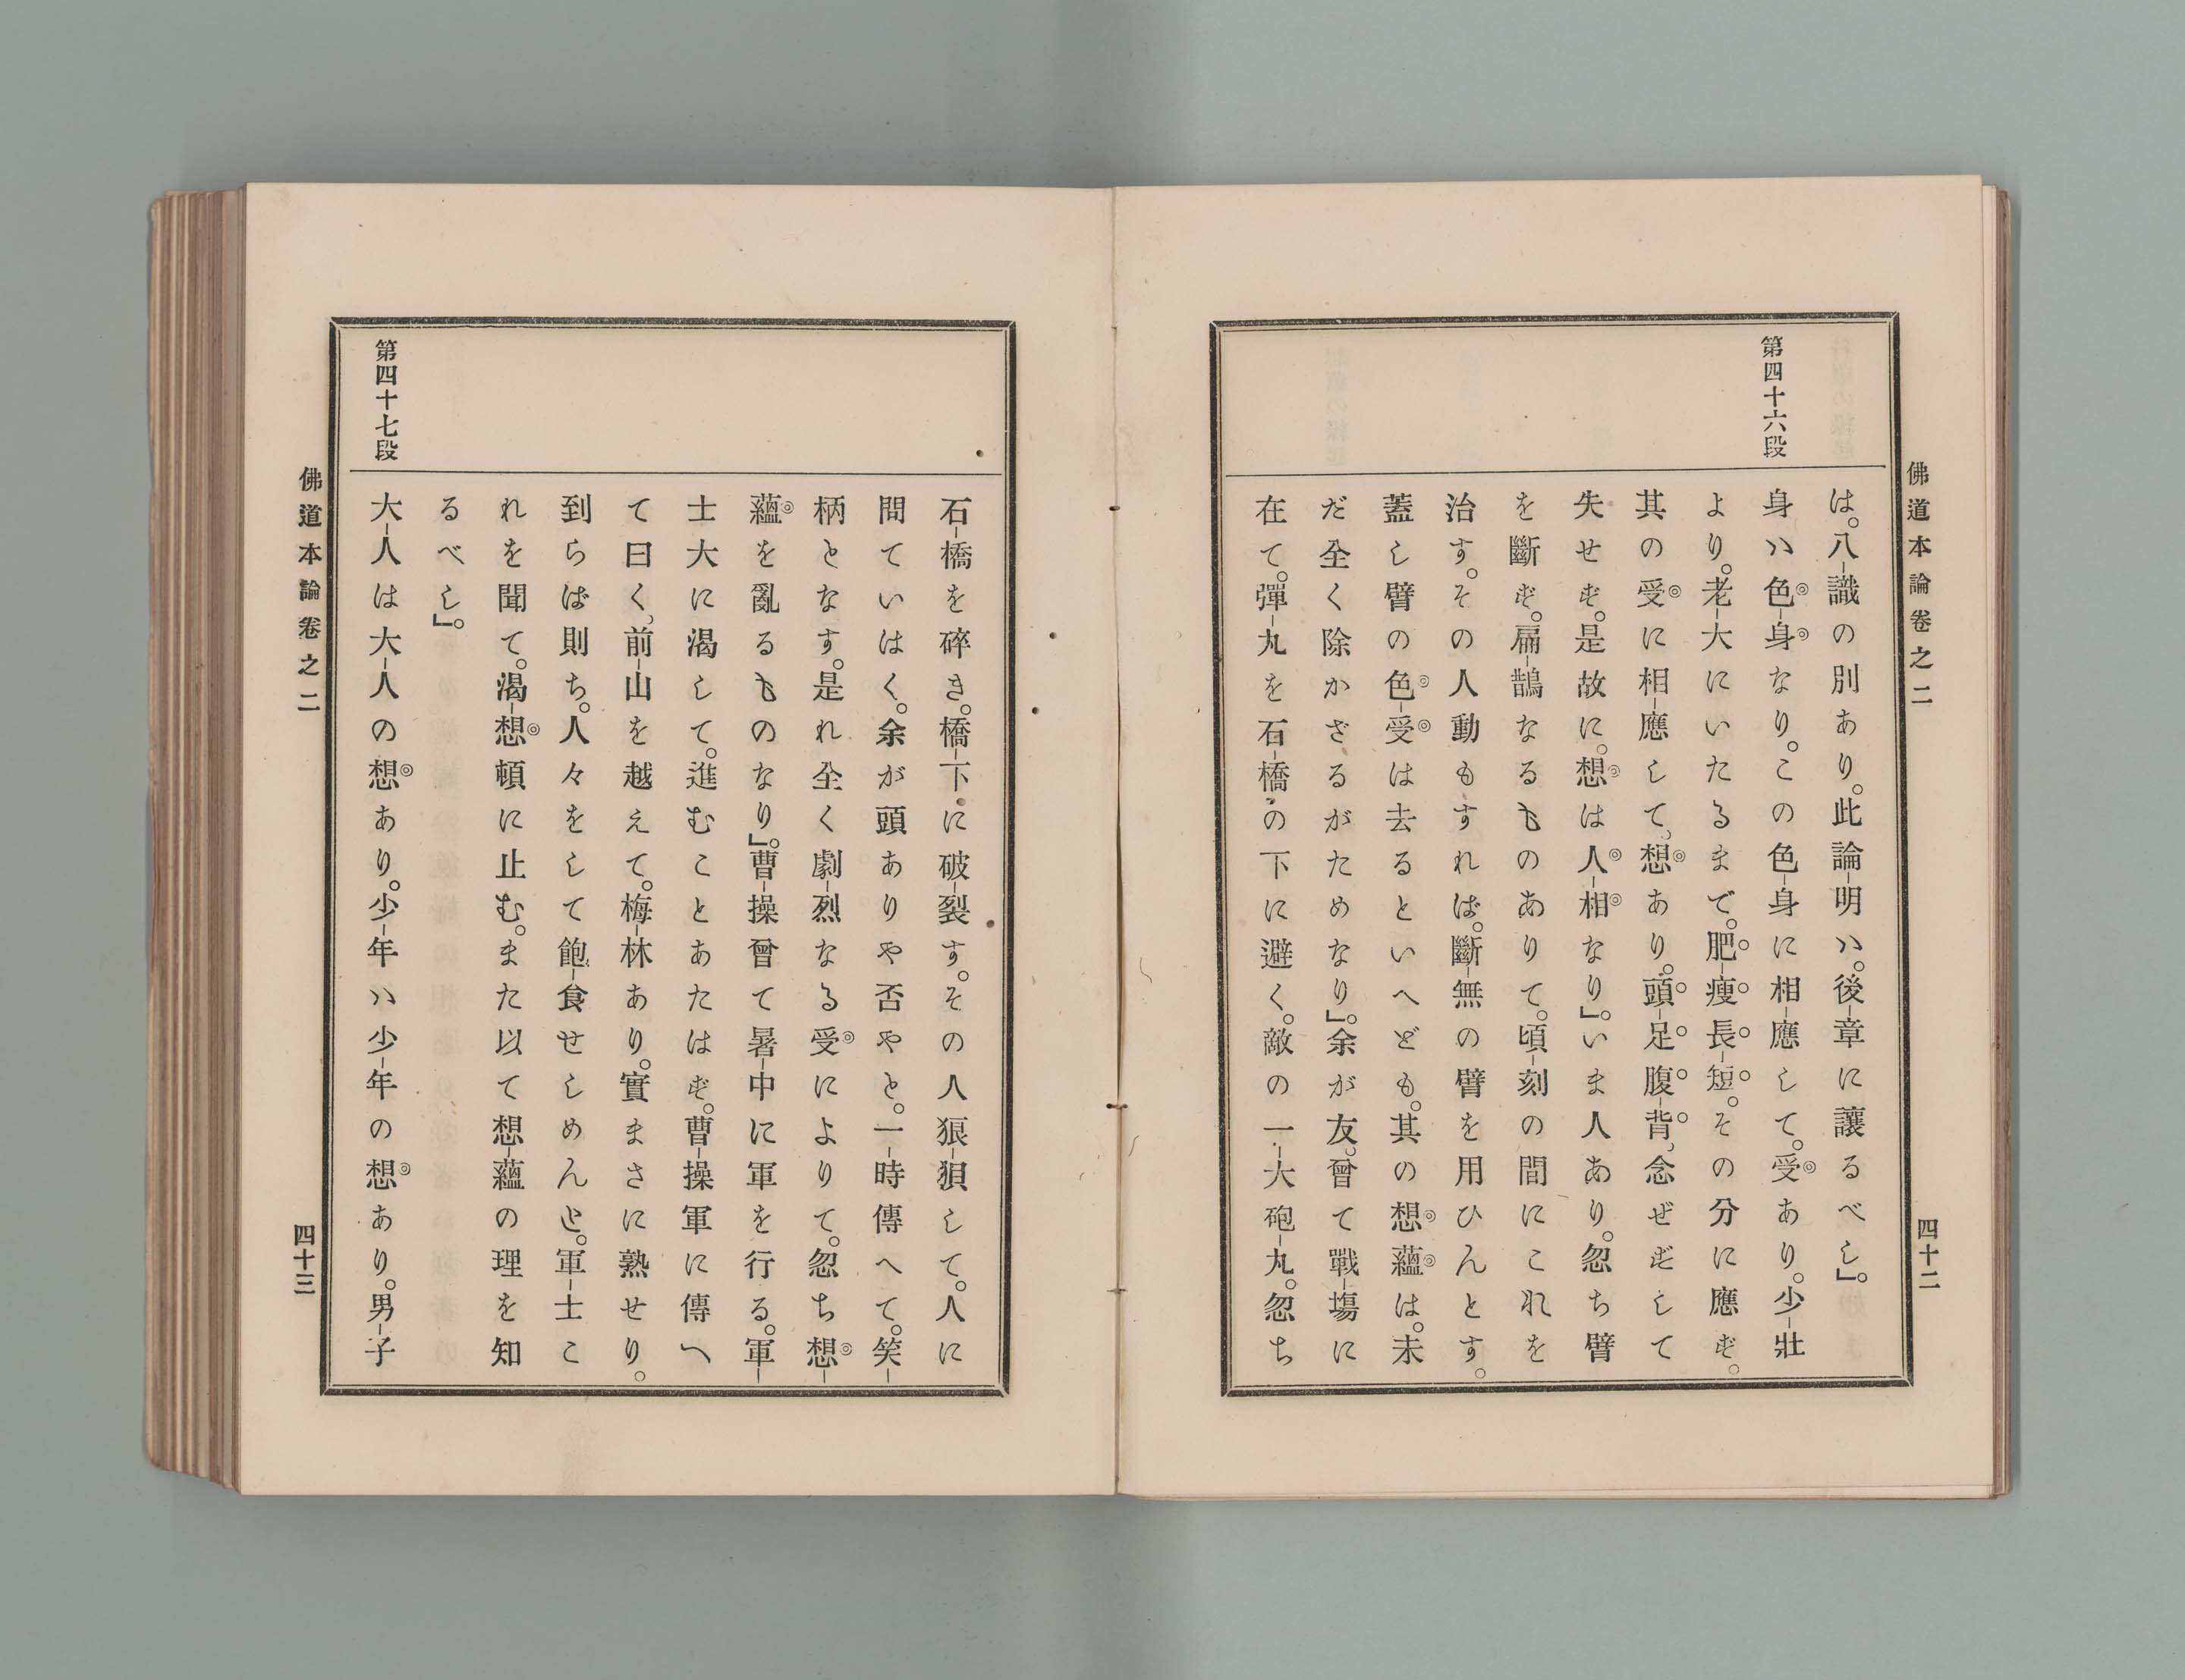 佛道本論卷之二
四十二
第四十六段
は。八-識の別あり。此論-明ハ。後-章に讓るべし」。
身ハ色-身なり。この色-身に相-應して。受あり。少-壯
より。老-大にいたるまで。肥-瘦長-短。その分に應ず。
其の受に相-應して、想あり。頭-足腹-背、念ぜずして
失せず。是故に。想は人-相なり」。いま人あり。忽ち臂
を斷ず。扁-鵲なるものありて。頃-刻の間にこれを
治す。その人動もすれば。斷-無の臂を用ひんとす。
蓋し臂の色-受は去るといへども。其の想蘊は。未
だ全く除かざるがためなり」。余が友。曾て戰-塲に
在て。彈-丸を石-橋の下に避く。敵の一-大砲-丸。忽ち
石-橋を碎き。橋-下に破-裂す。その人狼-狽して。人に
問ていはく。余が頭ありや否やと。一-時傳へて。笑-
柄となす。是れ全く劇-烈なる受によりて。忽ち想-
蘊を亂るものなり」。曹-操曾て暑-中に軍を行る。軍-
士大に渴して。進むことあたはず。曹-操軍に傳へ
て曰く、前-山を越えて。梅-林あり。實まさに熟せり。
到らば則ち。人々をして飽-食せしめんと。軍-士こ
れを聞て。渴-想頓に止む。また以て想-蘊の理を知
るべし」。
第四十七段
大-人は大-人の想あり。少-年ハ少-年の想あり。男-子
佛道本論卷之二
四十三